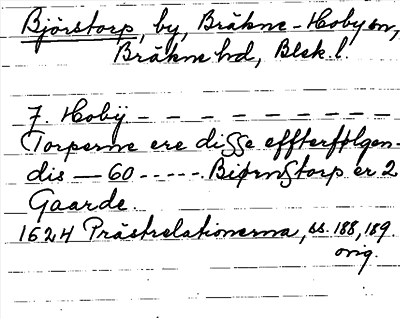 Björstorp, by, Bräkne-Hoby sn,
Bräkne hd, Blek. l.
J. Hobÿ - - - - - - - - -
Torperne ere disse effterfølgen-
dis — 60 ----- Biørnstorp er 2
Gaarde.
1624 Prästrelationerna, ss. 188, 189.
orig.